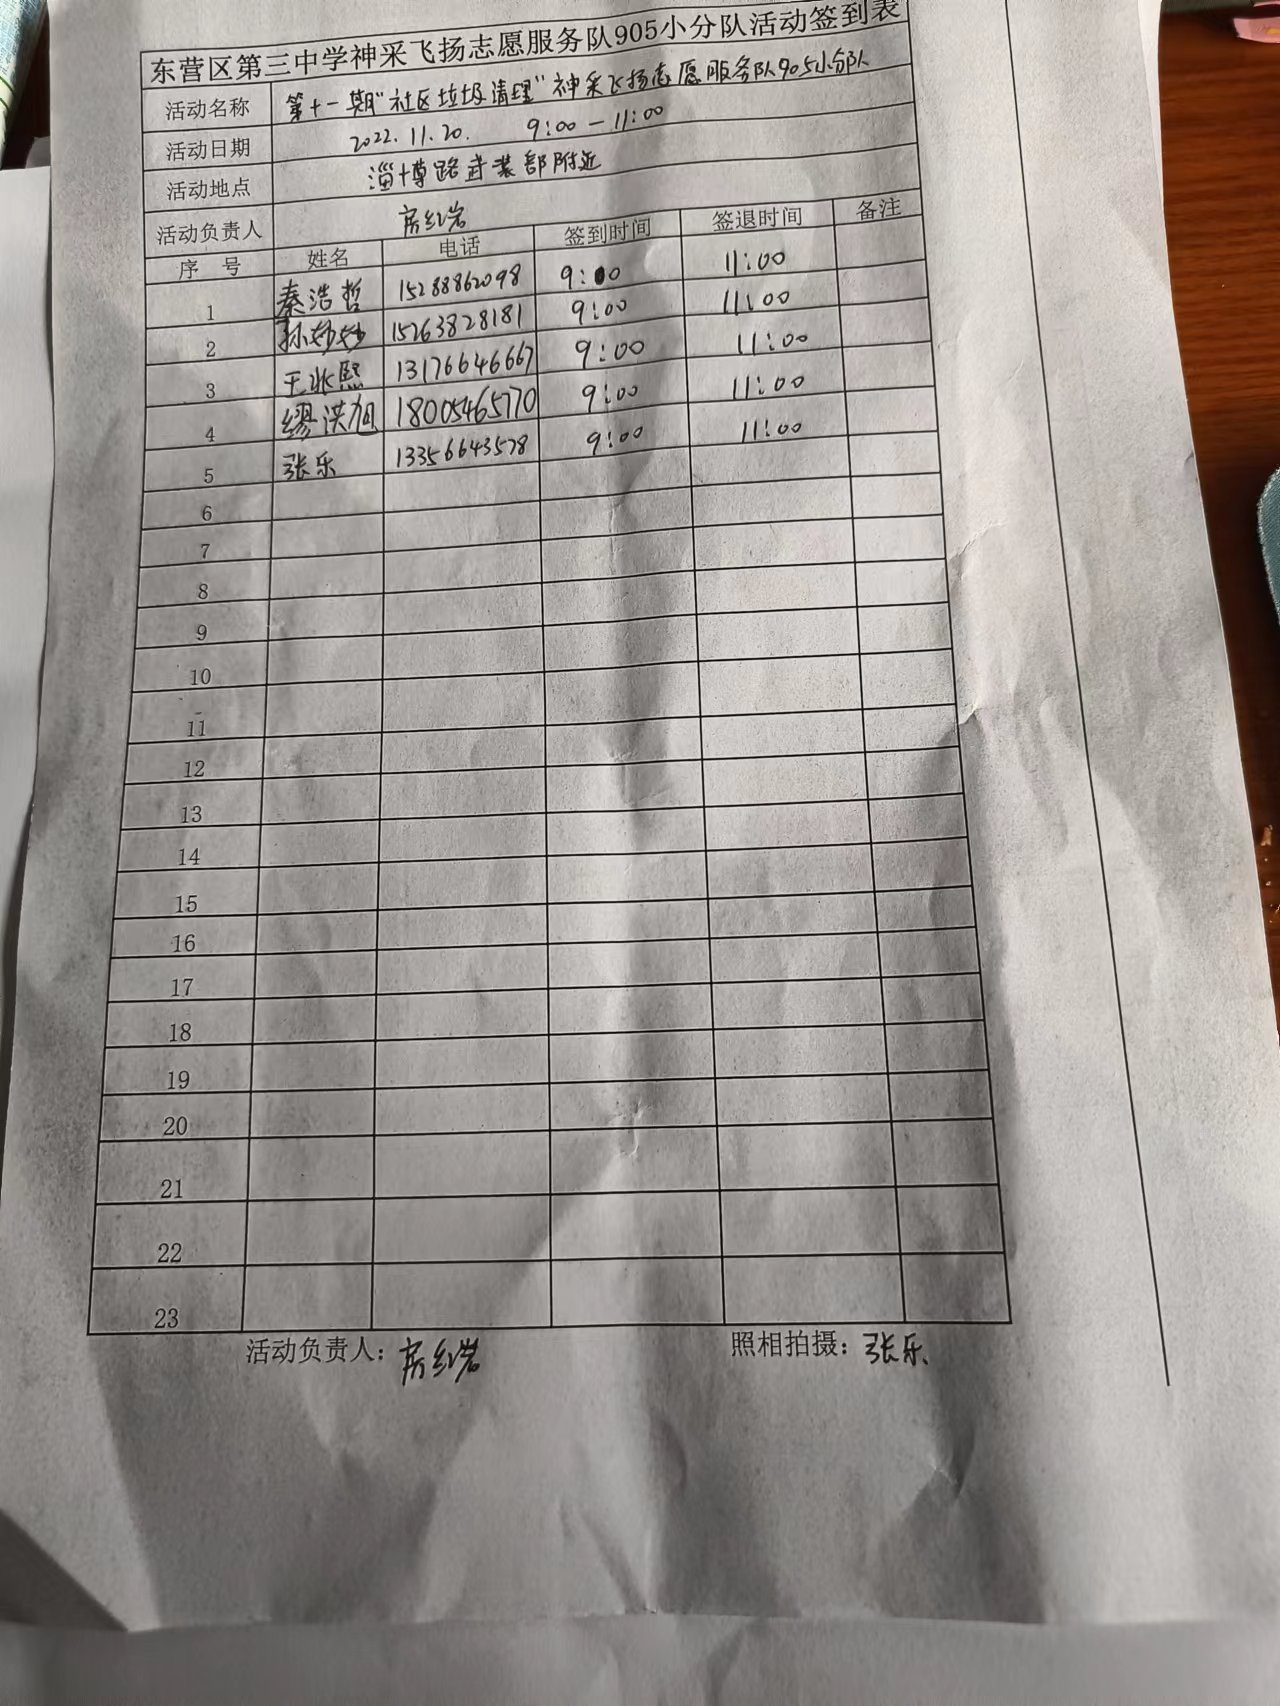 东营区第三中学神采飞扬志愿服务队905小分队活动签到表
活动名称 第十一期"社区垃圾清理"神采飞扬志愿服务队905小分队
活动日期 2022.11.20. 9:00-11:00
活动地点 淄博路武装部附近
活动负责人 房红岩
序号 姓名 电话 签到时间 签退时间 备注
1 秦浩哲 15288862098 9:00 11:00
2 孙妙妙 15263828181 9:00 11:00
3 王兆熙 13176646667 9:00 11:00
4 缪洪旭 18005465770 9:00 11:00
5 张乐 13356643578 9:00 11:00
6
7
8
9
10
11
12
13
14
15
16
17
18
19
20
21
22
23
活动负责人：房红岩 照相拍摄：张乐.